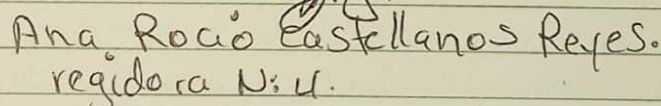 Ana Rocio Castellanos Reyes.
regidora N: 4.